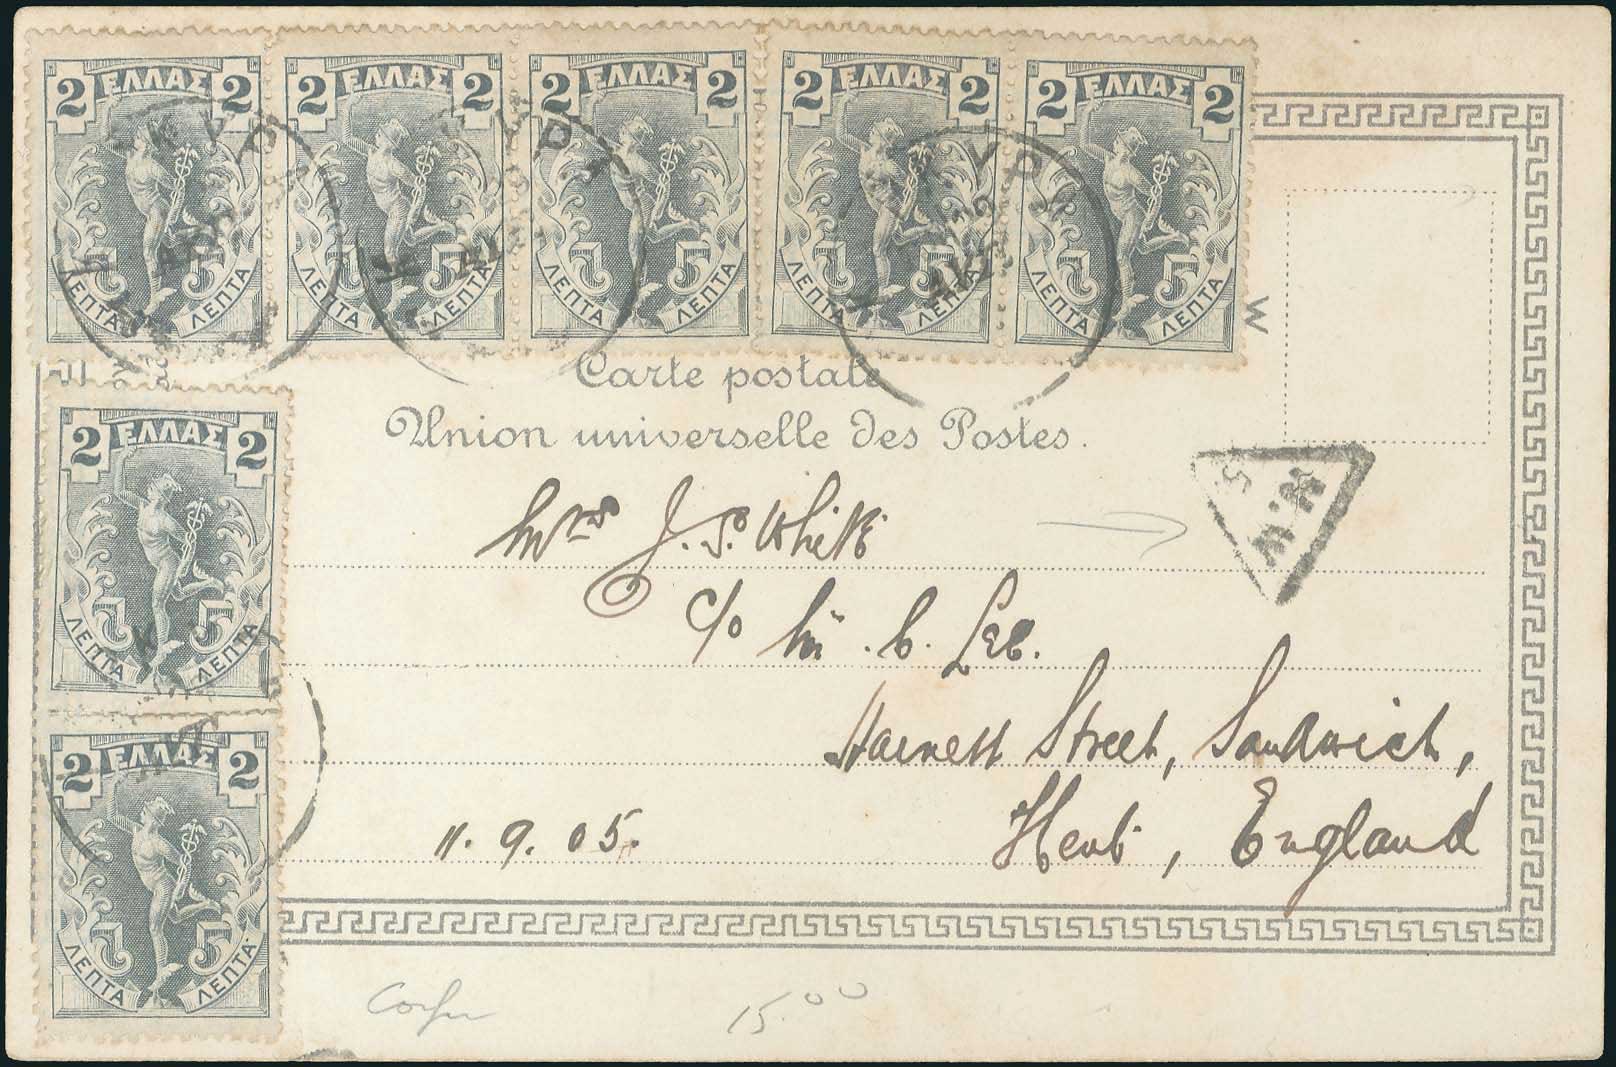 2 ΕΛΛΑΣ 2 2 ΕΛΛΑΣ 2 2 ΕΛΛΑΣ 2 2 ΕΛΛΑΣ 2 2 ΕΛΛΑΣ 2
ΛΕΠΤΑ ΛΕΠΤΑ ΛΕΠΤΑ ΛΕΠΤΑ ΛΕΠΤΑ ΛΕΠΤΑ ΛΕΠΤΑ ΛΕΠΤΑ ΛΕΠΤΑ ΛΕΠΤΑ
Carte postale
Union universelle des Postes.
2 ΕΛΛΑΣ 2
ΛΕΠΤΑ ΛΕΠΤΑ
2 ΕΛΛΑΣ 2
ΛΕΠΤΑ ΛΕΠΤΑ
Mrs J. S. White
c/o Mr. C. Lee.
Harnett Street, Sandwich,
11.9.05.
Kent, England
Corfu
15.00